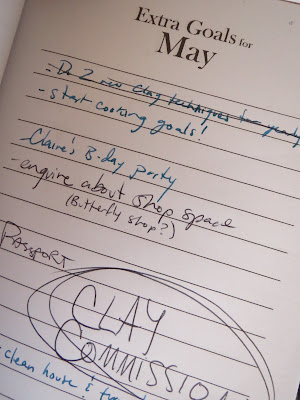 Extra Goals for
May
- Do 2 new clay techniques
- start cooking goals!
Claire's B-day party
- enquire about shop space
(Butterfly shop?)
PASSPORT
CLAY
COMMISSION
clean house &